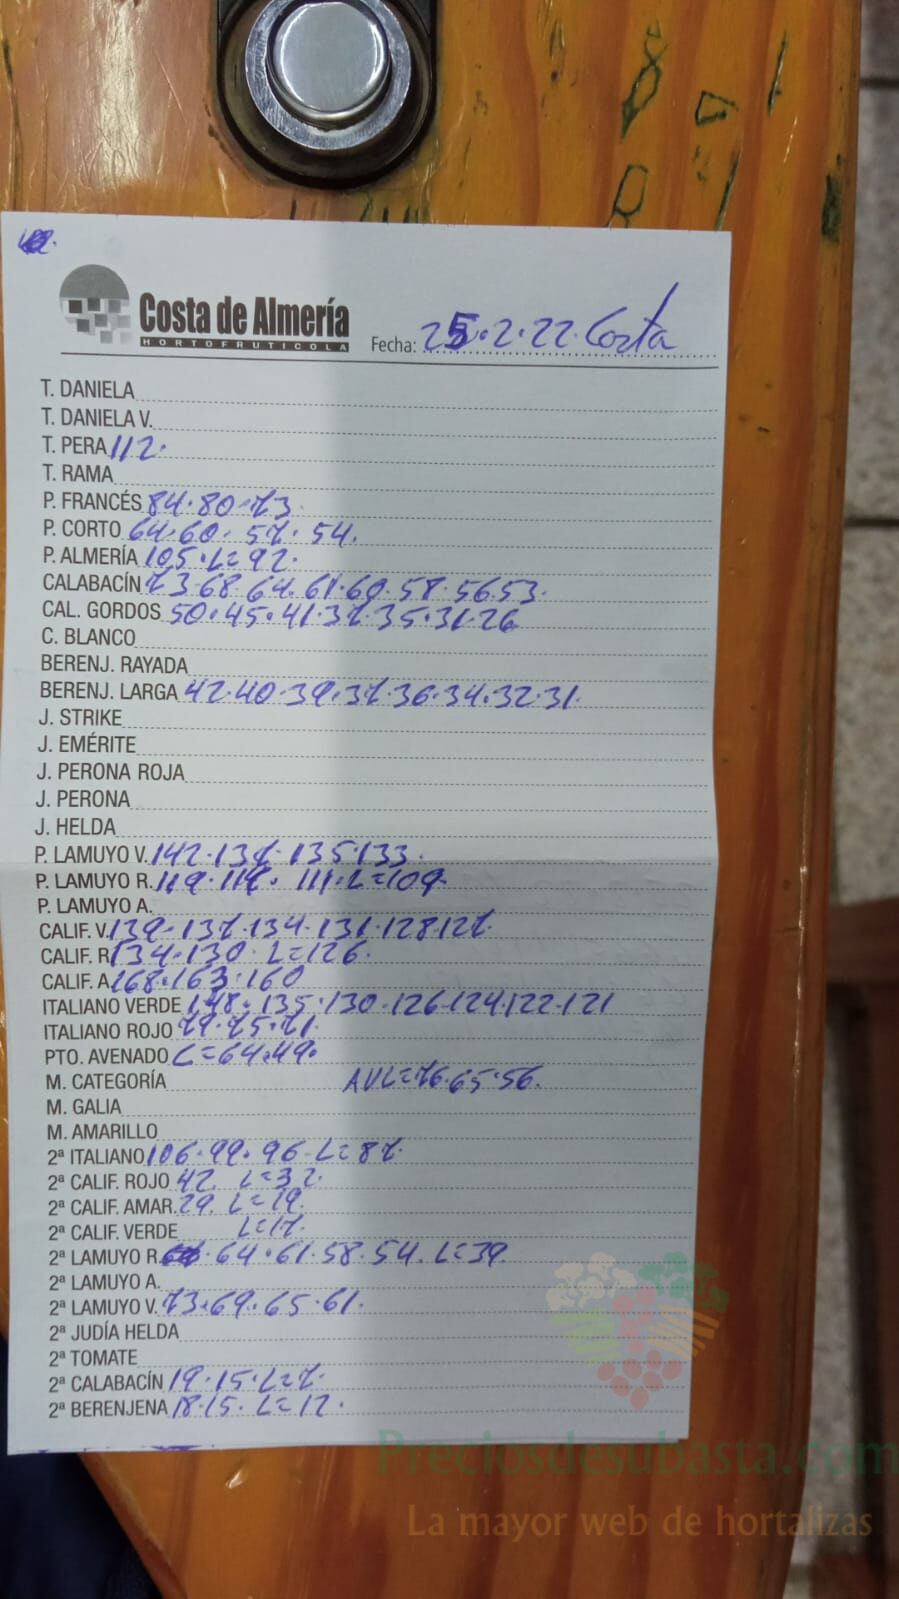 Costa de Almería
HORTOFRUTICOLA
Fecha: 25.2.22. Costa
T. DANIELA
T. DANIELA V.
T. PERA 112.
T. RAMA
P. FRANCÉS 84.80.73
P. CORTO 64.60. 57. 54.
P. ALMERÍA 105. L=92.
CALABACÍN 73.68.64.61.60.58.56.53.
CAL. GORDOS 50.45.41.37.35.31.26
C. BLANCO
BERENJ. RAYADA
BERENJ. LARGA 42.40.39.37.36.34.32.31.
J. STRIKE
J. EMÉRITE
J. PERONA ROJA
J. PERONA
J. HELDA
P. LAMUYO V. 142.137.135.133.
P. LAMUYO R. 119.117. 111. L=109.
P. LAMUYO A.
CALIF. V. 139.137.134.131.128.127.
CALIF. R. 134.130. L=126.
CALIF. A. 168.163.160
ITALIANO VERDE 148.135.130.126.124.122.121
ITALIANO ROJO 79.75.71.
PTO. AVENADO L=64.49.
M. CATEGORÍA AVL=76.65.56.
M. GALIA
M. AMARILLO
2ª ITALIANO 106.99.96 L=87.
2ª CALIF. ROJO 42. L=32.
2ª CALIF. AMAR. 29. L=19.
2ª CALIF. VERDE L=17.
2ª LAMUYO R. 64.61.58.54. L=39.
2ª LAMUYO A.
2ª LAMUYO V. 73.69.65.61.
2ª JUDÍA HELDA
2ª TOMATE
2ª CALABACÍN 19.15. L=7.
2ª BERENJENA 18.15. L=12.
Preciosdesubasta.com
La mayor web de hortalizas